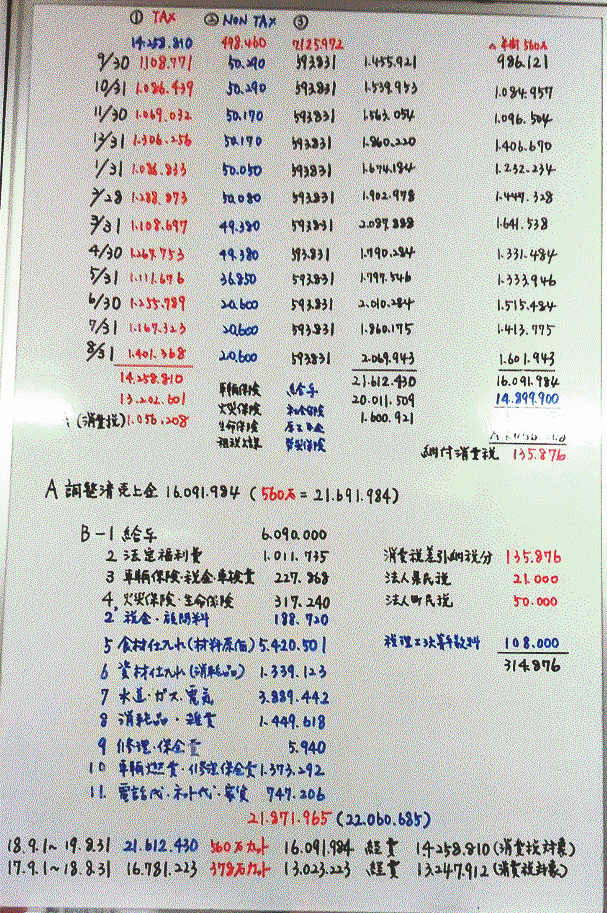 ① TAX ② NON TAX ③
14.258.810 498.460 7125.972
9/30 1.108.771 50.290 593.831 1.455.921 986.121
10/31 1.086.439 50.290 593.831 1.539.953 1.084.957
11/30 1.069.032 50.170 593.831 1.563.054 1.096.504
12/31 1.306.256 50.170 593.831 1.860.220 1.406.670
1/31 1.086.833 50.050 593.831 1.674.184 1.232.234
2/28 1.288.873 50.080 593.831 1.902.978 1.447.328
3/31 1.108.697 49.380 593.831 2.087.888 1.641.538
4/30 1.267.753 49.380 593.831 1.790.284 1.331.484
5/31 1.111.676 36.850 593.831 1.797.546 1.333.946
6/30 1.255.789 20.600 593.831 2.010.284 1.515.484
7/31 1.167.323 20.600 593.831 1.860.175 1.413.775
8/31 1.401.368 20.600 593831 2.069.943 1.601.943
14.258.810 21.612.430 16.091.984
13.202.601 車輌保険 給与 20.011.509 14.899.900
(消費税) 1.056.208 火災保険 1.600.921
生命保険
労災保険
納付消費税 135.876
A 調整済売上金 16.091.984 (560万 = 21.691.984)
B-1 給与 6.090.000
2 法定福利費 1.011.735 消費税差引納税分 135.876
3 車輌保険・税金・車検費 227.868 法人県民税 21.000
4 火災保険・生命保険 317.240 法人町民税 50.000
2 税金・顧問料 188.720
5 食材仕入れ(材料原価) 5.420.501 税理士決算手数料 108.000
6 資材仕入れ(消耗品) 1.339.123 314.876
7 水道・ガス・電気 3.889.442
8 消耗品・雑費 1.449.618
9 修理・保全費 5.940
10 車輌燃費・修理保全費 1.373.292
11. 電話代・ネット代・家賃 747.206
21.871.965 (22.060.685)
18.9.1~19.8.31 21.612.430 560万カット 16.091.984 経費 14.258.810 (消費税対象)
17.9.1~18.8.31 16.781.223 378万カット 13.023.223 経費 13.247.912 (消費税対象)